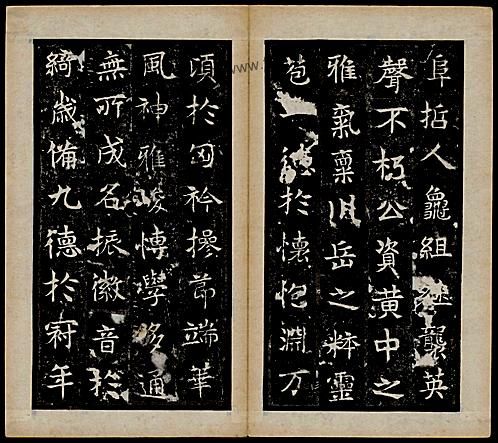 阜哲人龜組継襲英
聲不朽公資黄中之
雅氣稟川岳之粹靈
苞一德於懷抱淵万
頃於匈衿操節端華
風神雅峻博學多通
無所成名振徽音於
綺歲備九德於冠年
www.